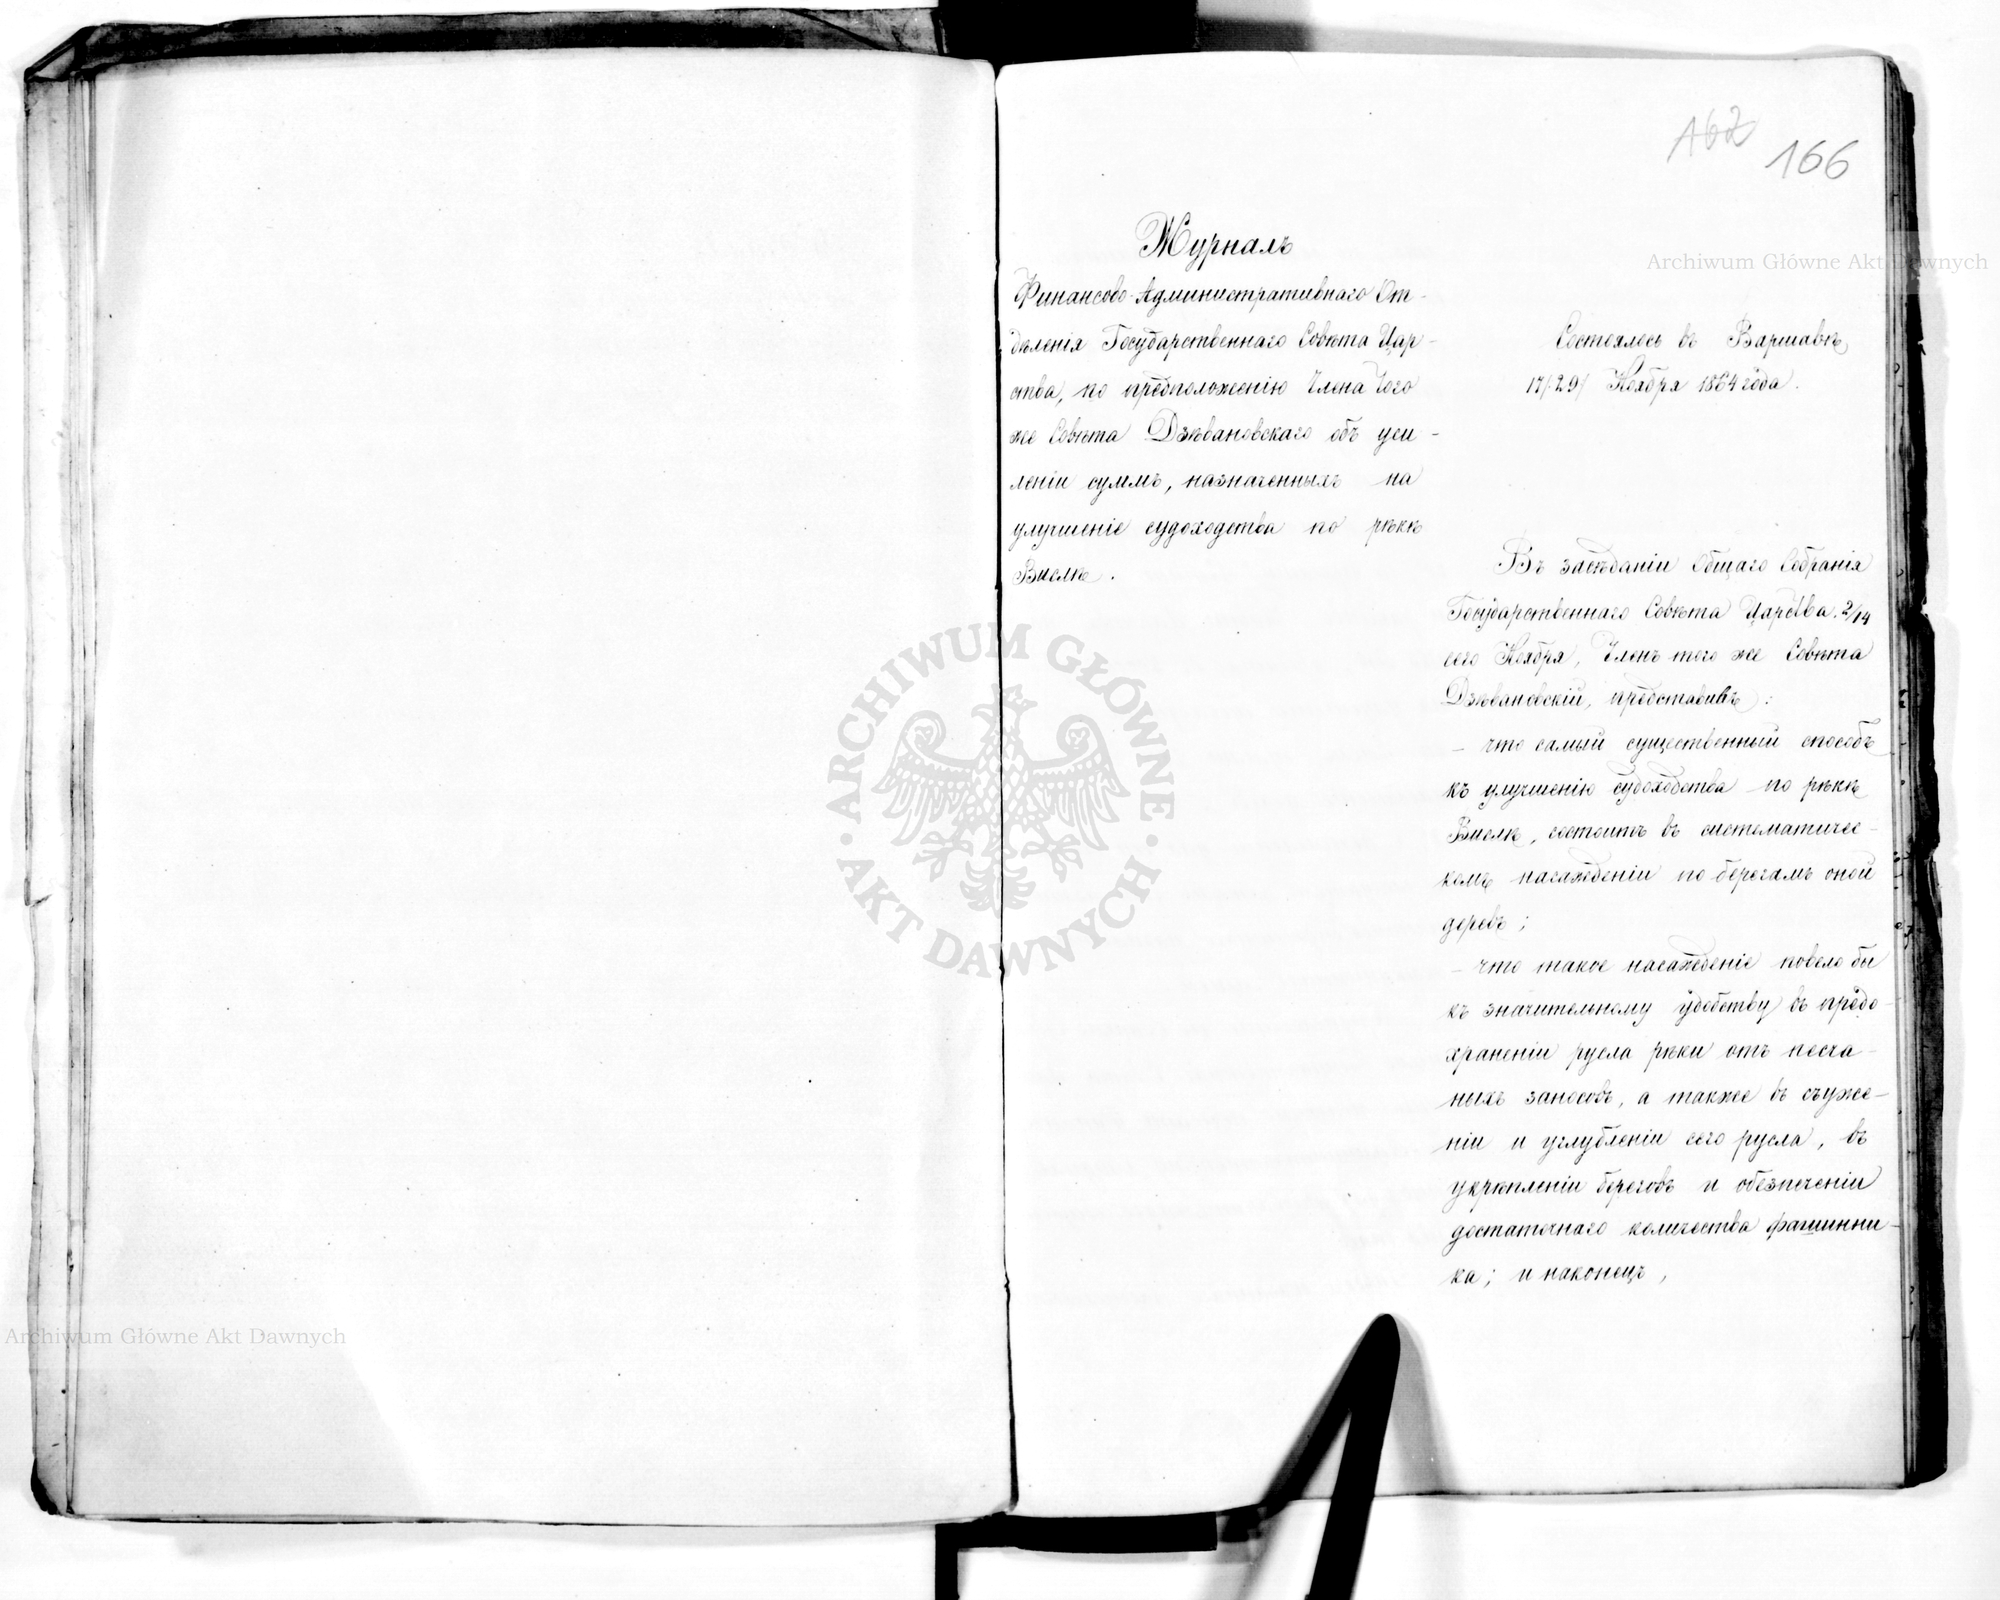 162
166
Журналъ
Финансово-Административнаго От-
дѣленія Государственнаго Совѣта Цар-
ства, по предположенію Члена того
же Совѣта Дзѣвановскаго объ уси-
леніи суммъ, назначенныхъ на
улучшеніе судоходства по рѣкѣ
Вислѣ.
Состоялось въ Варшавѣ
17/29/ Ноября 1864 года.
Въ засѣданіи Общаго Собранія
Государственнаго Совѣта Царства 2/14
сего Ноября, Членъ того же Совѣта
Дзѣвановскій, представивъ:
- что самый существенный способъ
къ улучшенію судоходства по рѣкѣ
Вислѣ, состоитъ въ систематичес-
комъ насажденіи по берегамъ оной
деревъ;
- что такое насажденіе повело бы
къ значительному удобству въ предо-
храненіи русла рѣки отъ песча-
ныхъ заносовъ, а также въ съуже-
ніи и углубленіи сего русла, въ
укрѣпленіи береговъ и обезпеченіи
достаточнаго количества фашинни-
ка; и наконецъ,
Archiwum Główne Akt Dawnych
Archiwum Główne Akt Dawnych
ARCHIWUM GŁÓWNE
AKT DAWNYCH